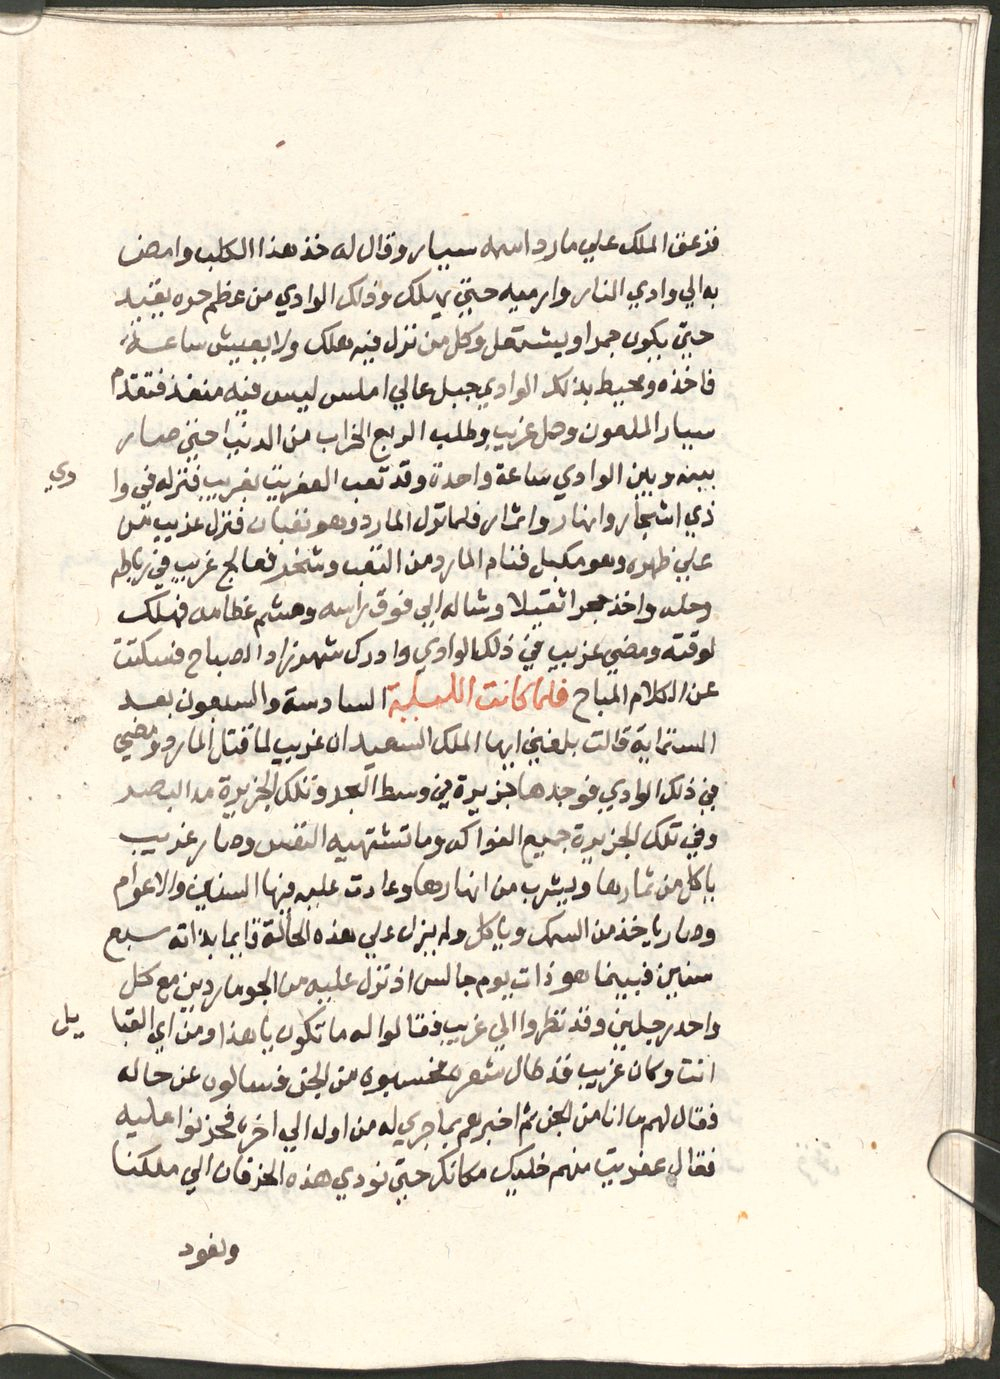 فزعق الملك علي مارد اسمه سيار وقال له خذ هذا الكلب وامض
به الي وادي النار وارميه حتي يهلك وذلك الوادي من عظم حره يقيد
حتي يكون جمرا ويشتعل وكل من نزل فيه هلك ولا يعيش ساعة
فاخذه ومحيط بذلك الوادي جبل عالي املس ليس فيه منفذ فتقدم
سيار الملعون وحمل غريب وطلب الربع الخراب من الدنيا حتي صار
بينه وبين الوادي ساعة واحدة وقد تعب العفريت بغريب فنزله في وا
دي
ذي اشجار وانهار واثمار فلما نزل المارد وهو تعبان فنزل غريب من
علي ظهره وهو مكبل فنام المارد من التعب وشخر فعالج غريب في رباطه
وحله واخذ حجرا ثقيلا وشاله الي فوق راسه وهشم عظامه فهلك
لوقته ومضي غريب في ذلك الوادي وادرك شهرزاد الصباح فسكتت
عن الكلام المباح فلما كانت الليلة السادسة والسبعون بعد
الستماية قالت بلغني ايها الملك السعيد ان غريب لما قتل المارد ومضي
في ذلك الوادي فوجدها جزيرة في وسط البحر وتلك الجزيرة مد البصر
وفي تلك الجزيرة جميع الفواكه وما تشتهيه النفس وصار غريب
ياكل من ثمارها ويشرب من انهارها وعادت عليه فيها السنين والاعوام
وصار ياخذ من السمك وياكل ولم يزل علي هذه الحالة قايما بذاته سبع
سنين فبينما هو ذات يوم جالس اذ نزل عليه من الجو ماردين مع كل
واحد رجلين وقد نظروا الي غريب فقالوا له ما تكون يا هذا ومن اي القبا
يل
انت وكان غريب قد طال شعره فحسبوه من الجن فسالوه عن حاله
فقال لهم ما انا من الجن ثم اخبرهم بما جري له من اوله الي اخره فحزنوا عليه
فقال عفريت منهم خليك مكانك حتي نودي هذه الخرفان الي ملكنا
ونعود